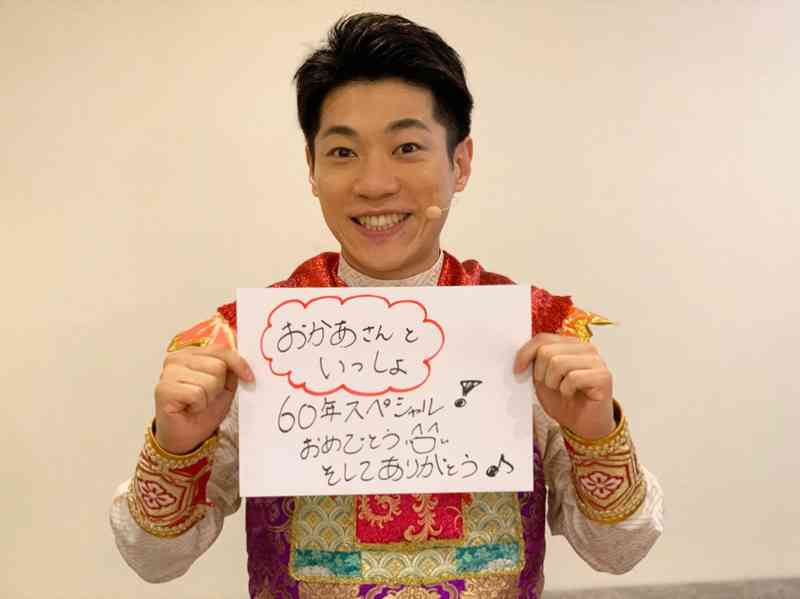 おかあさんと
いっしょ
60年スペシャル!
おめでとう
そしてありがとう♪